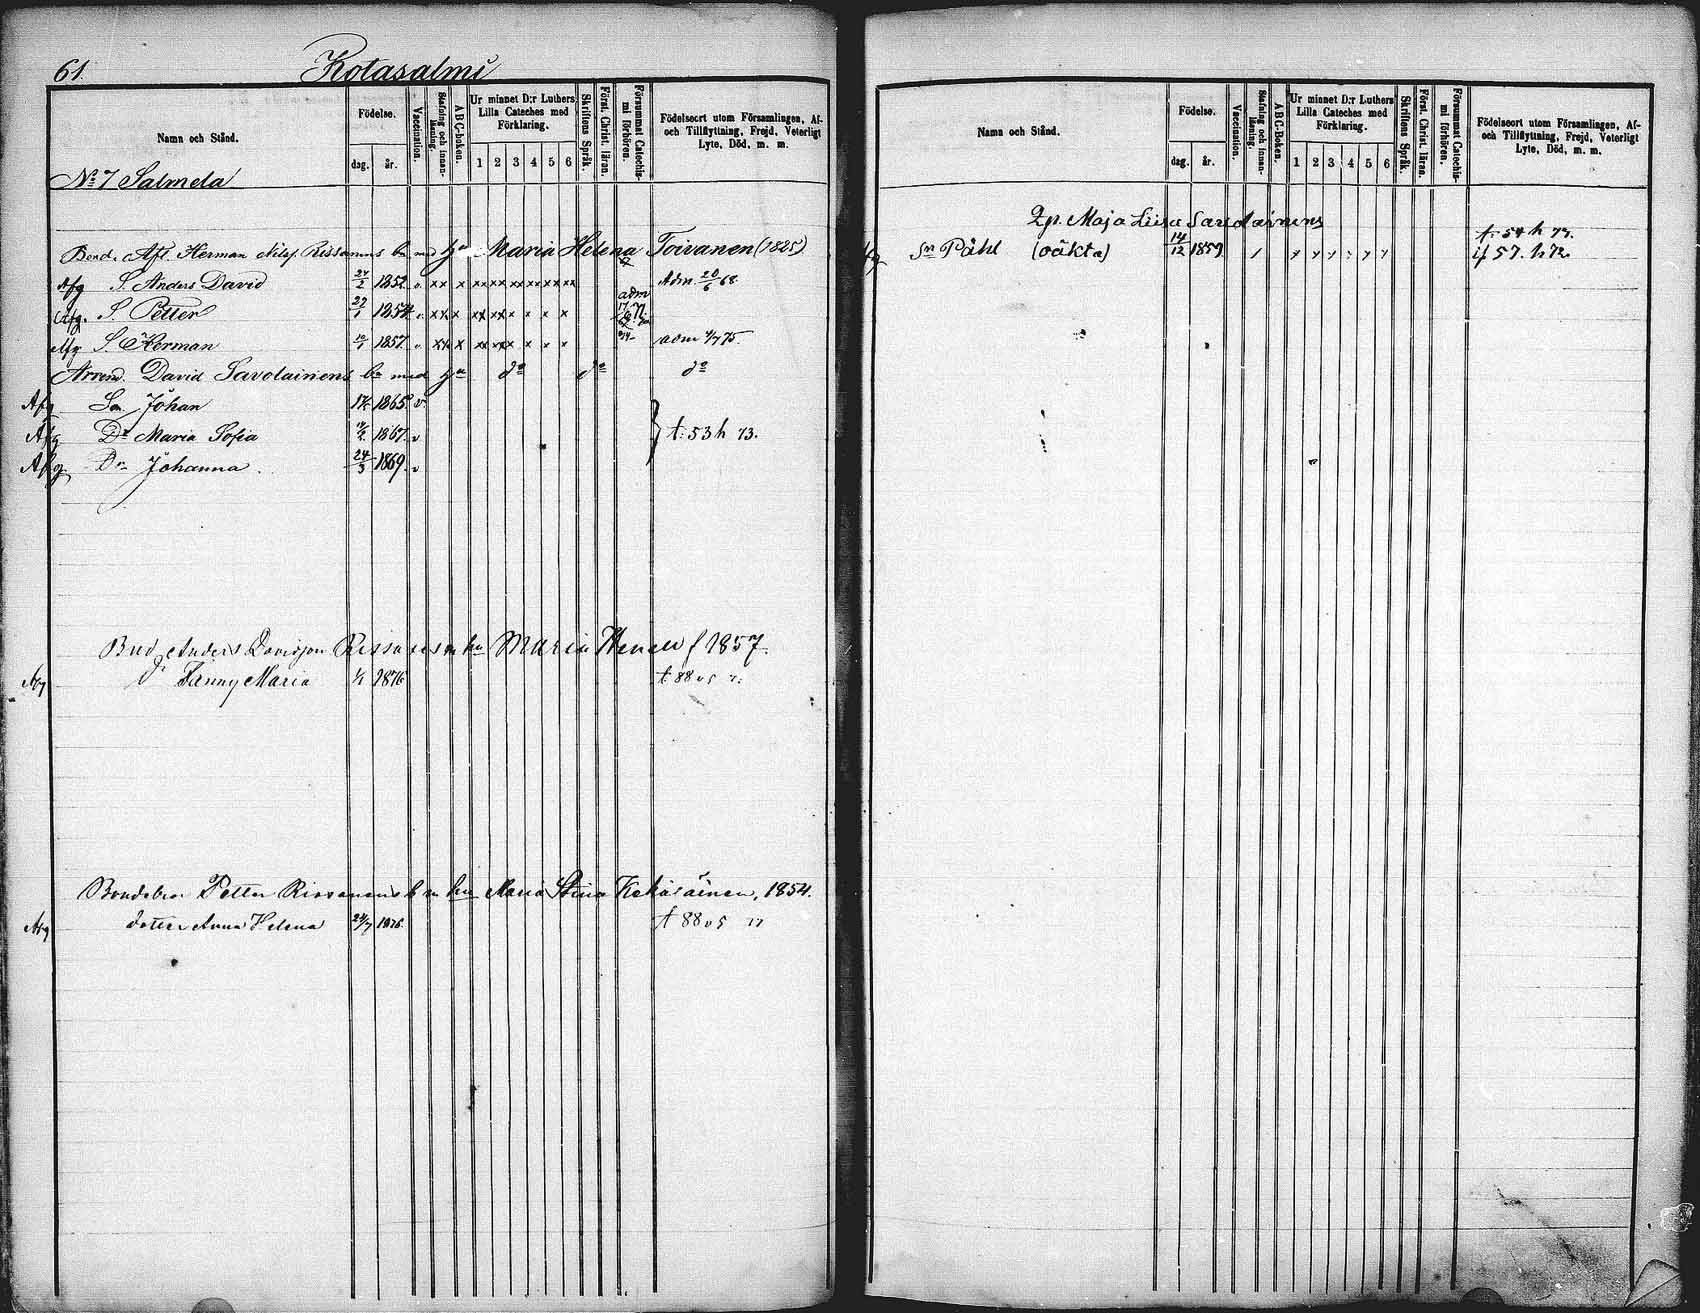 61
Kotasalmi
Namn och Stånd.
Födelse.
dag. år.
Vaccination.
Stafning och innan-läsning.
A B C-boken.
Ur minnet D:r Luthers Lilla Cateches med Förklaring.
1 2 3 4 5 6
Skriftens Språk.
Först. Christ. läran.
Försummat Catechis-mi förhören.
Födelseort utom Församlingen, Af- och Tillflyttning, Frejd, Veterligt Lyte, Död, m. m.
No 7 Salmela
Herman Nilsf. Rissanens bn med hu Maria Helena Toivanen (1825)
Afg S. Anders David 24/2 1852 v. Adm. 20/6 68
Afg. S. Petter 22/1 1854 v. adm
Afg S. Herman 10/1 1857 v. adm 4/7 75.
Arrend. David Savolainens bn med hu do do do
Afg Sn Johan 1865 v.
Afg Dr Maria Sofia 1867 v t: 53 h 73.
Afg Dr Johanna 24/3 1869 v
Bnd Anders Davidson Rissanens hu Maria f 1857.
Afg Fanny Maria 1/1 1876 t 88 o 5
Petter Rissanens b m hu Maria Stina 1854.
Afg doter Anna Helena 24/7 1876 t 88 o 5 77
Namn och Stånd.
Födelse.
dag. år.
Vaccination.
Stafning och innan-läsning.
A B C-Boken.
Ur minnet D:r Luthers Lilla Cateches med Förklaring.
1 2 3 4 5 6
Skriftens Språk.
Först. Christ. läran.
Försummat Catechis-mi förhören.
Födelseort utom Församlingen, Af- och Tillflyttning, Frejd, Veterligt Lyte, Död, m. m.
Maja Liisa Savolainens
Sn Påhl (oäkta) 14/12 1859 57. h 72.